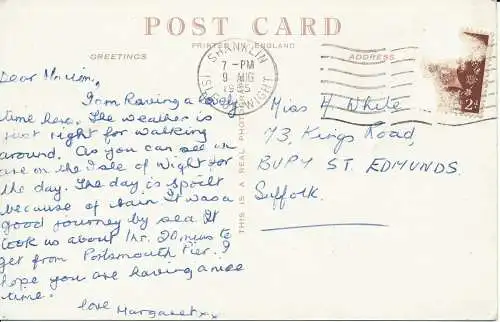 POST CARD
PRINTED IN ENGLAND
GREETINGS
ADDRESS
SHANKLIN
7 - PM
9 AUG
ISLE OF WIGHT
THIS IS A REAL PHOTO
2d
Dear
I am having a lovely
time here. The weather is
just right for walking
around. As you can see we
are on the Isle of Wight for
the day. The day is spoilt
because of rain It was a
good journey by sea. It
took us about 1 hr. 20 mins to
get from Portsmouth Pier. I
hope you are having a nice
time.
love Margaret xx
Miss H White
73, Kings Road,
BUPY ST. EDMUNDS.
Suffolk.